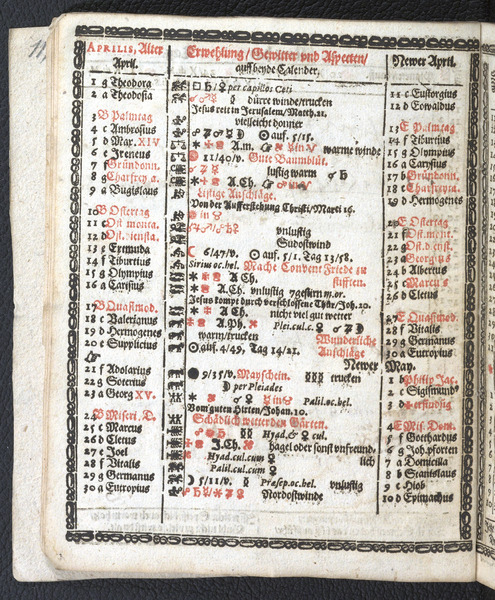 APRILIS, Alter
April.
1 g Theodora
2 a Theodosia
3 B Palmtag
4 c Ambrosius
5 d Max. XIV
6 e Ireneus
7 f Gründonn.
8 g Charfrey.
9 a Bugislaus
10 B Ostertag
11 c Ost monta.
12 d Ost. diensta.
13 e Eremuda
14 f Tiburtius
15 g Olympius
16 a Carisius
17 B Quasimod.
18 c Valerianus
19 d Hermogenes
20 e Sulpicius
21 f Adolarius
22 g Soterius
23 a Georg XV.
24 B Miseri. D.
25 c Marcus
26 d Cletus
27 e Joel
28 f Vitalis
29 g Germanus
30 a Eutropius
Erwehlung / Gewitter vnd Aspecten /
auff beyde Calender.
per capillos Ceti
dürre winde/trucken
Jesus reit in Jerusalem/Matth. 21.
vielleicht donner
auf. 5/15.
A.m. warme winde
11/40/v. Gute Baumblüt.
lustig warm
A.Ch.
Listige Anschläge.
Von der Aufferstehung Christi/Marci 16.
in
vnlustig
Sudostwind
6/47/v. auf. 5/1. Tag 13/58.
Sirius oc. hel. Mache Convent Friede zu
A Ch. stifften.
A.Ch. vnlustig 7gestirn m.or.
Jesus kompt durch verschlossene Thür/Joh. 10.
A Ch. nicht viel gut wetter
A.Ph. Plei.cul.c.
warm/trucken Wunderliche
auf. 4/49, Tag 14/21. Anschläge
Newer
9/35/v. Mayschein. trucken
per Pleiades
in Palil.oc.hel.
Vom guten Hirten/Johan. 10.
Schädlich wetter den Gärten.
Hyad. & cul.
J.Ch. hagel oder sonst vnfreund-
Hyad.cul.cum lich
Palil.cul.cum
5/11/v. Præsep.oc.hel. vnlustig
Nordostwinde
Newer April.
11 c Eustorgius
12 d Ewaldus
13 E Palmtag
14 f Tiburtius
15 g Olympius
16 a Carysius
17 b Gründonn.
18 c Charfreyta.
19 d Hermogenes
20 E Ostertag
21 f Ost. mont.
22 g Ost. dienst.
23 a Georgius
24 b Albertus
25 c Marcus
26 d Cletus
27 E Quasimod.
28 f Vitalis
29 g Germanus
30 a Eutropius
May.
1 b Philip Jac.
2 c Sigismund
3 d
4 E Mis. Dom.
5 f Gotthardus
6 g Joh. pforten
7 a Domicilla
8 b Stanislaus
9 c Hiob
10 d Epimachus